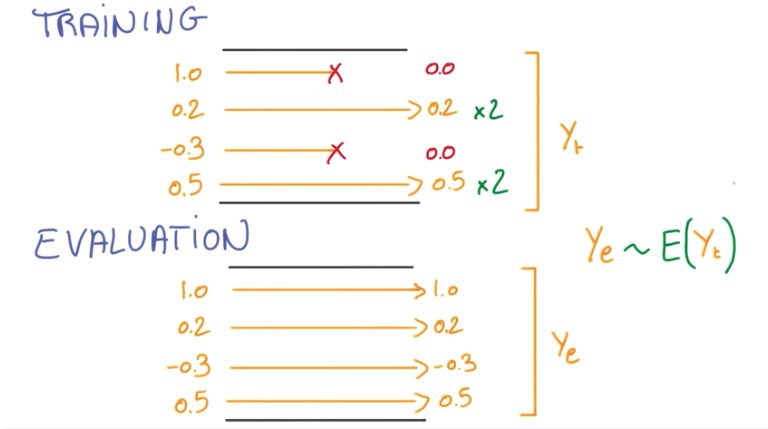 TRAINING
1.0 x 0.0
0.2 0.2 x2
-0.3 x 0.0
0.5 0.5 x2
Yt
EVALUATION
Ye ~ E(Yt)
1.0 1.0
0.2 0.2
-0.3 -0.3
0.5 0.5
Ye